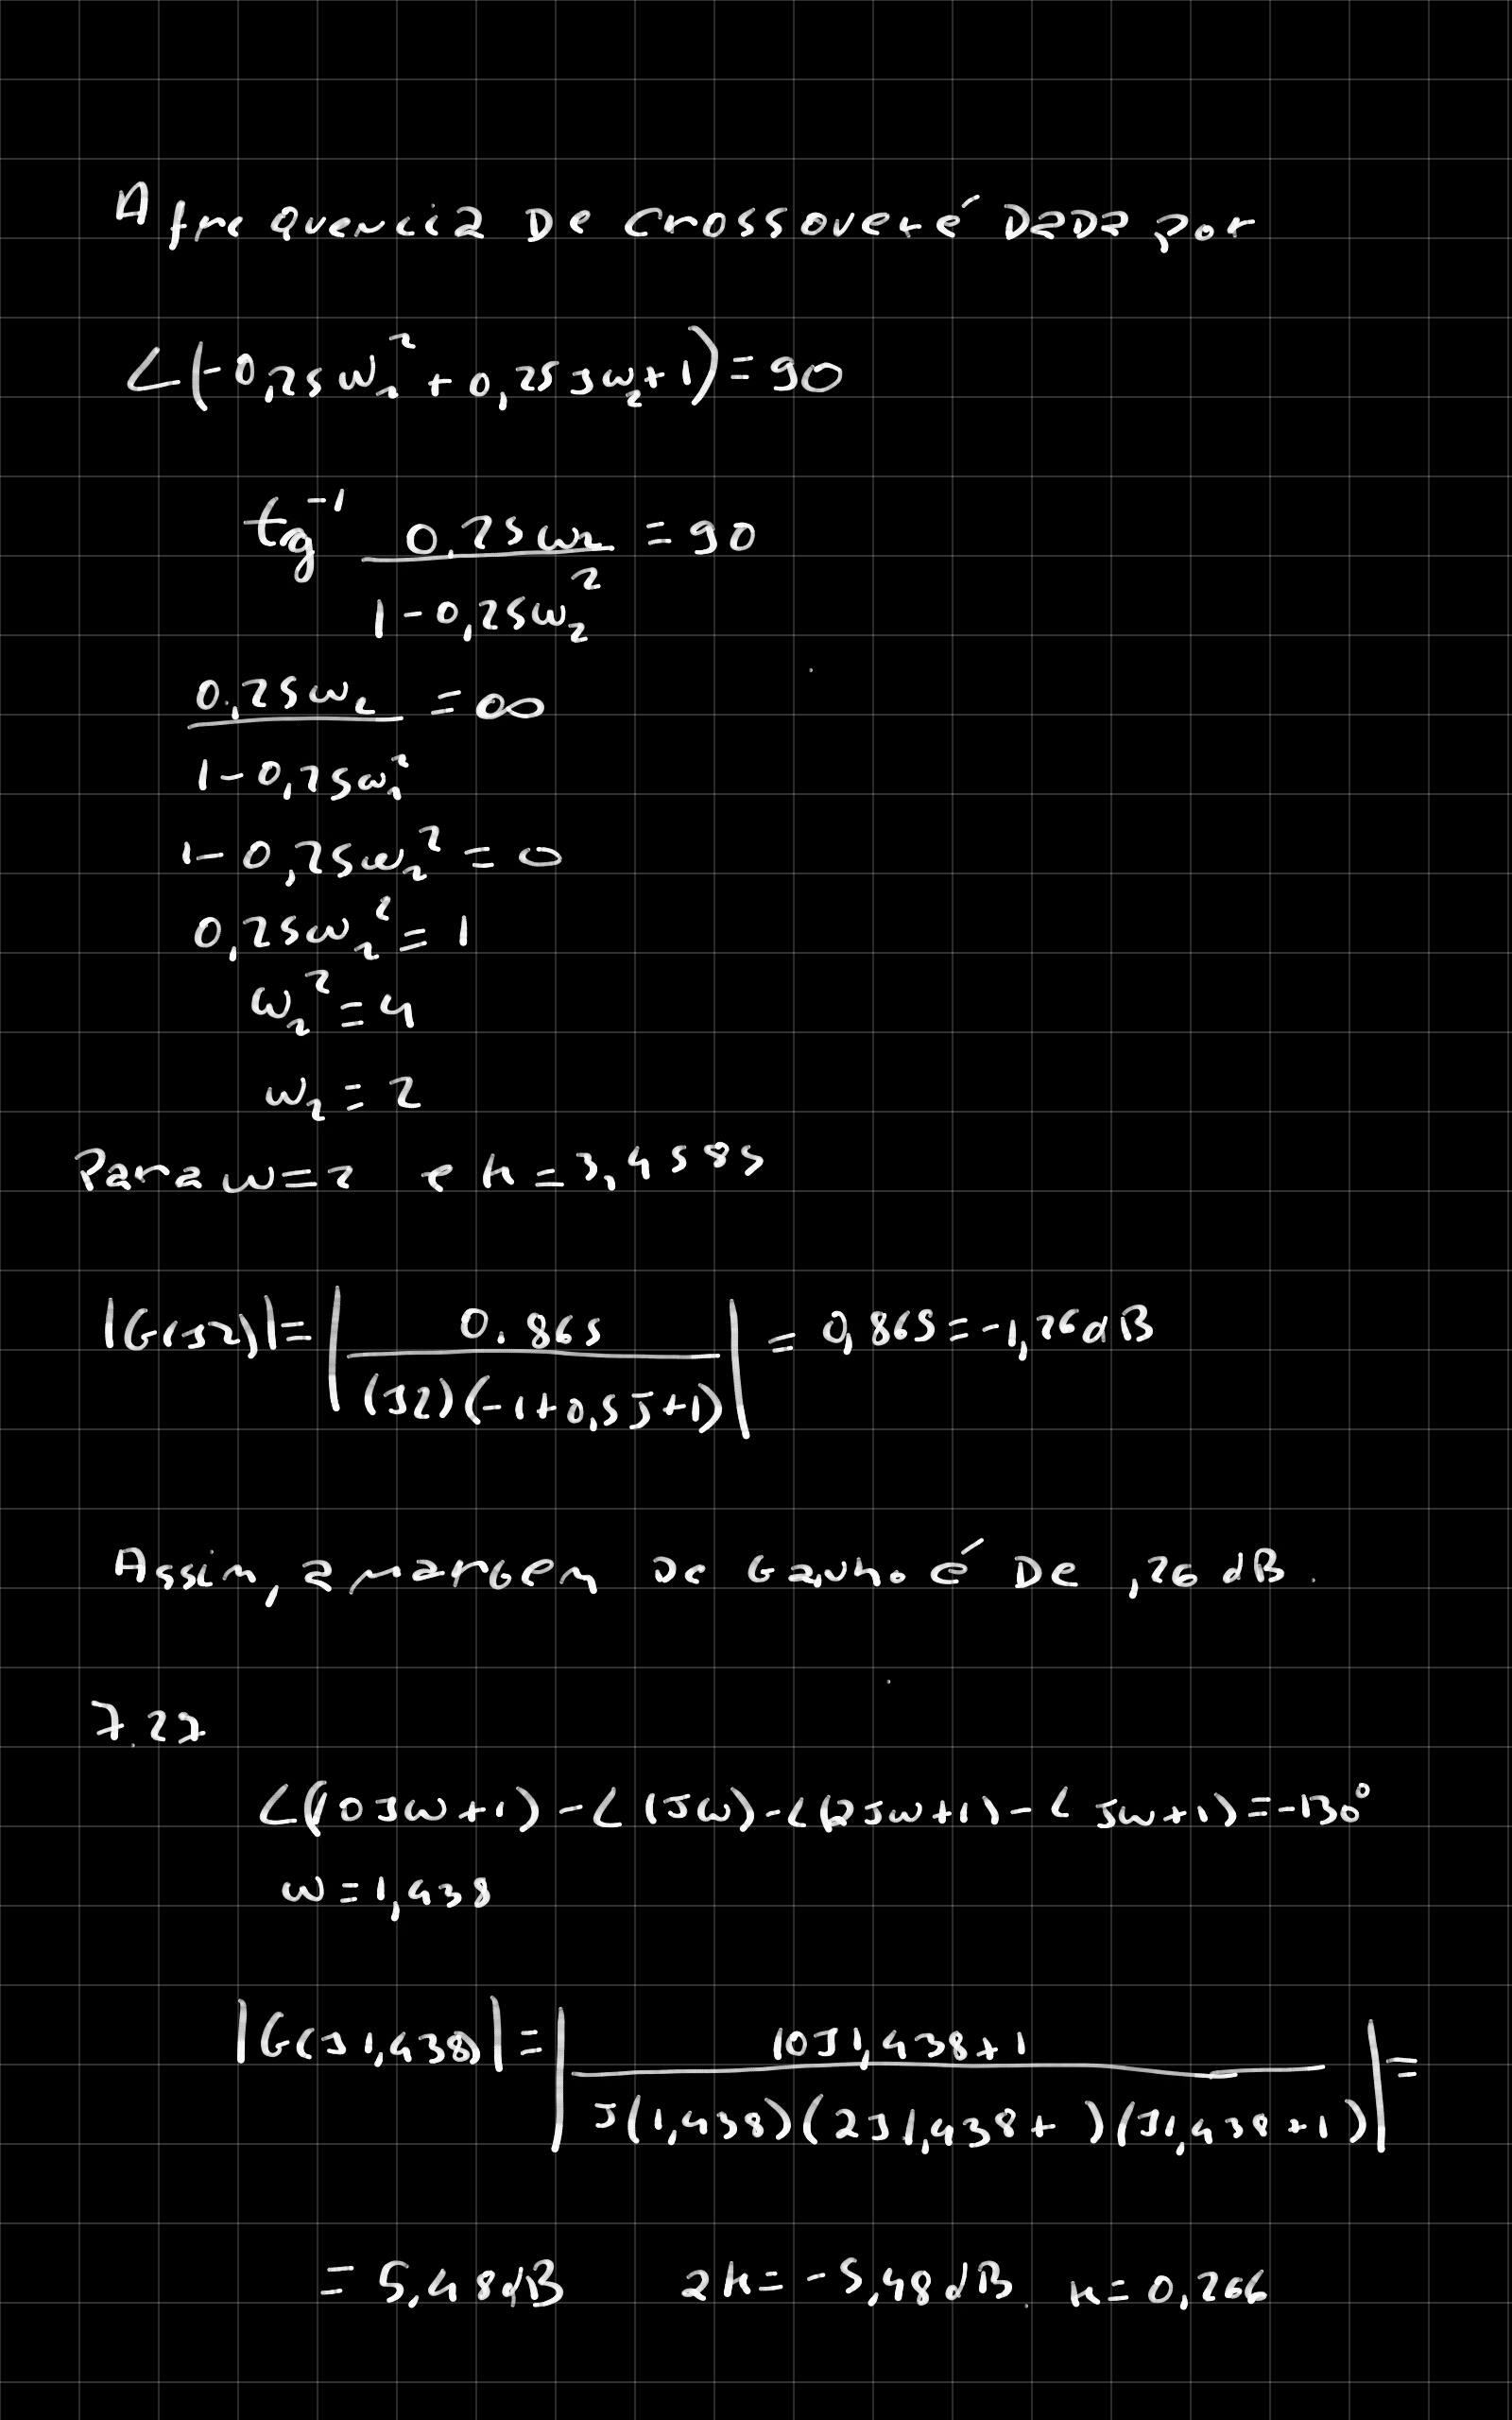 A frequencia De crossover é Dada por
∠(-0,25ω₂² + 0,25jω₂+1)=90
tg⁻¹ 0,25ω₂ / 1-0,25ω₂² = 90
0,25ω₂ / 1-0,25ω₂² = ∞
1-0,25ω₂² = 0
0,25ω₂² = 1
ω₂² = 4
ω₂ = 2
Para ω=2 e k=3,4585
|G(j2)| = | 0.865 / (j2)(-1+0,5j+1) | = 0,865 = -1,26dB
Assim, a margem De Ganho é De ,26 dB.
7.27
∠(10jω+1) - ∠(jω) - ∠(2jω+1) - ∠ jω+1) = -130°
ω = 1,438
|G(j1,438)| = | 10j1,438+1 / j(1,438)(2j1,438+ )(j1,438+1) | =
= 5,48dB 2k = -5,48dB. k = 0,266